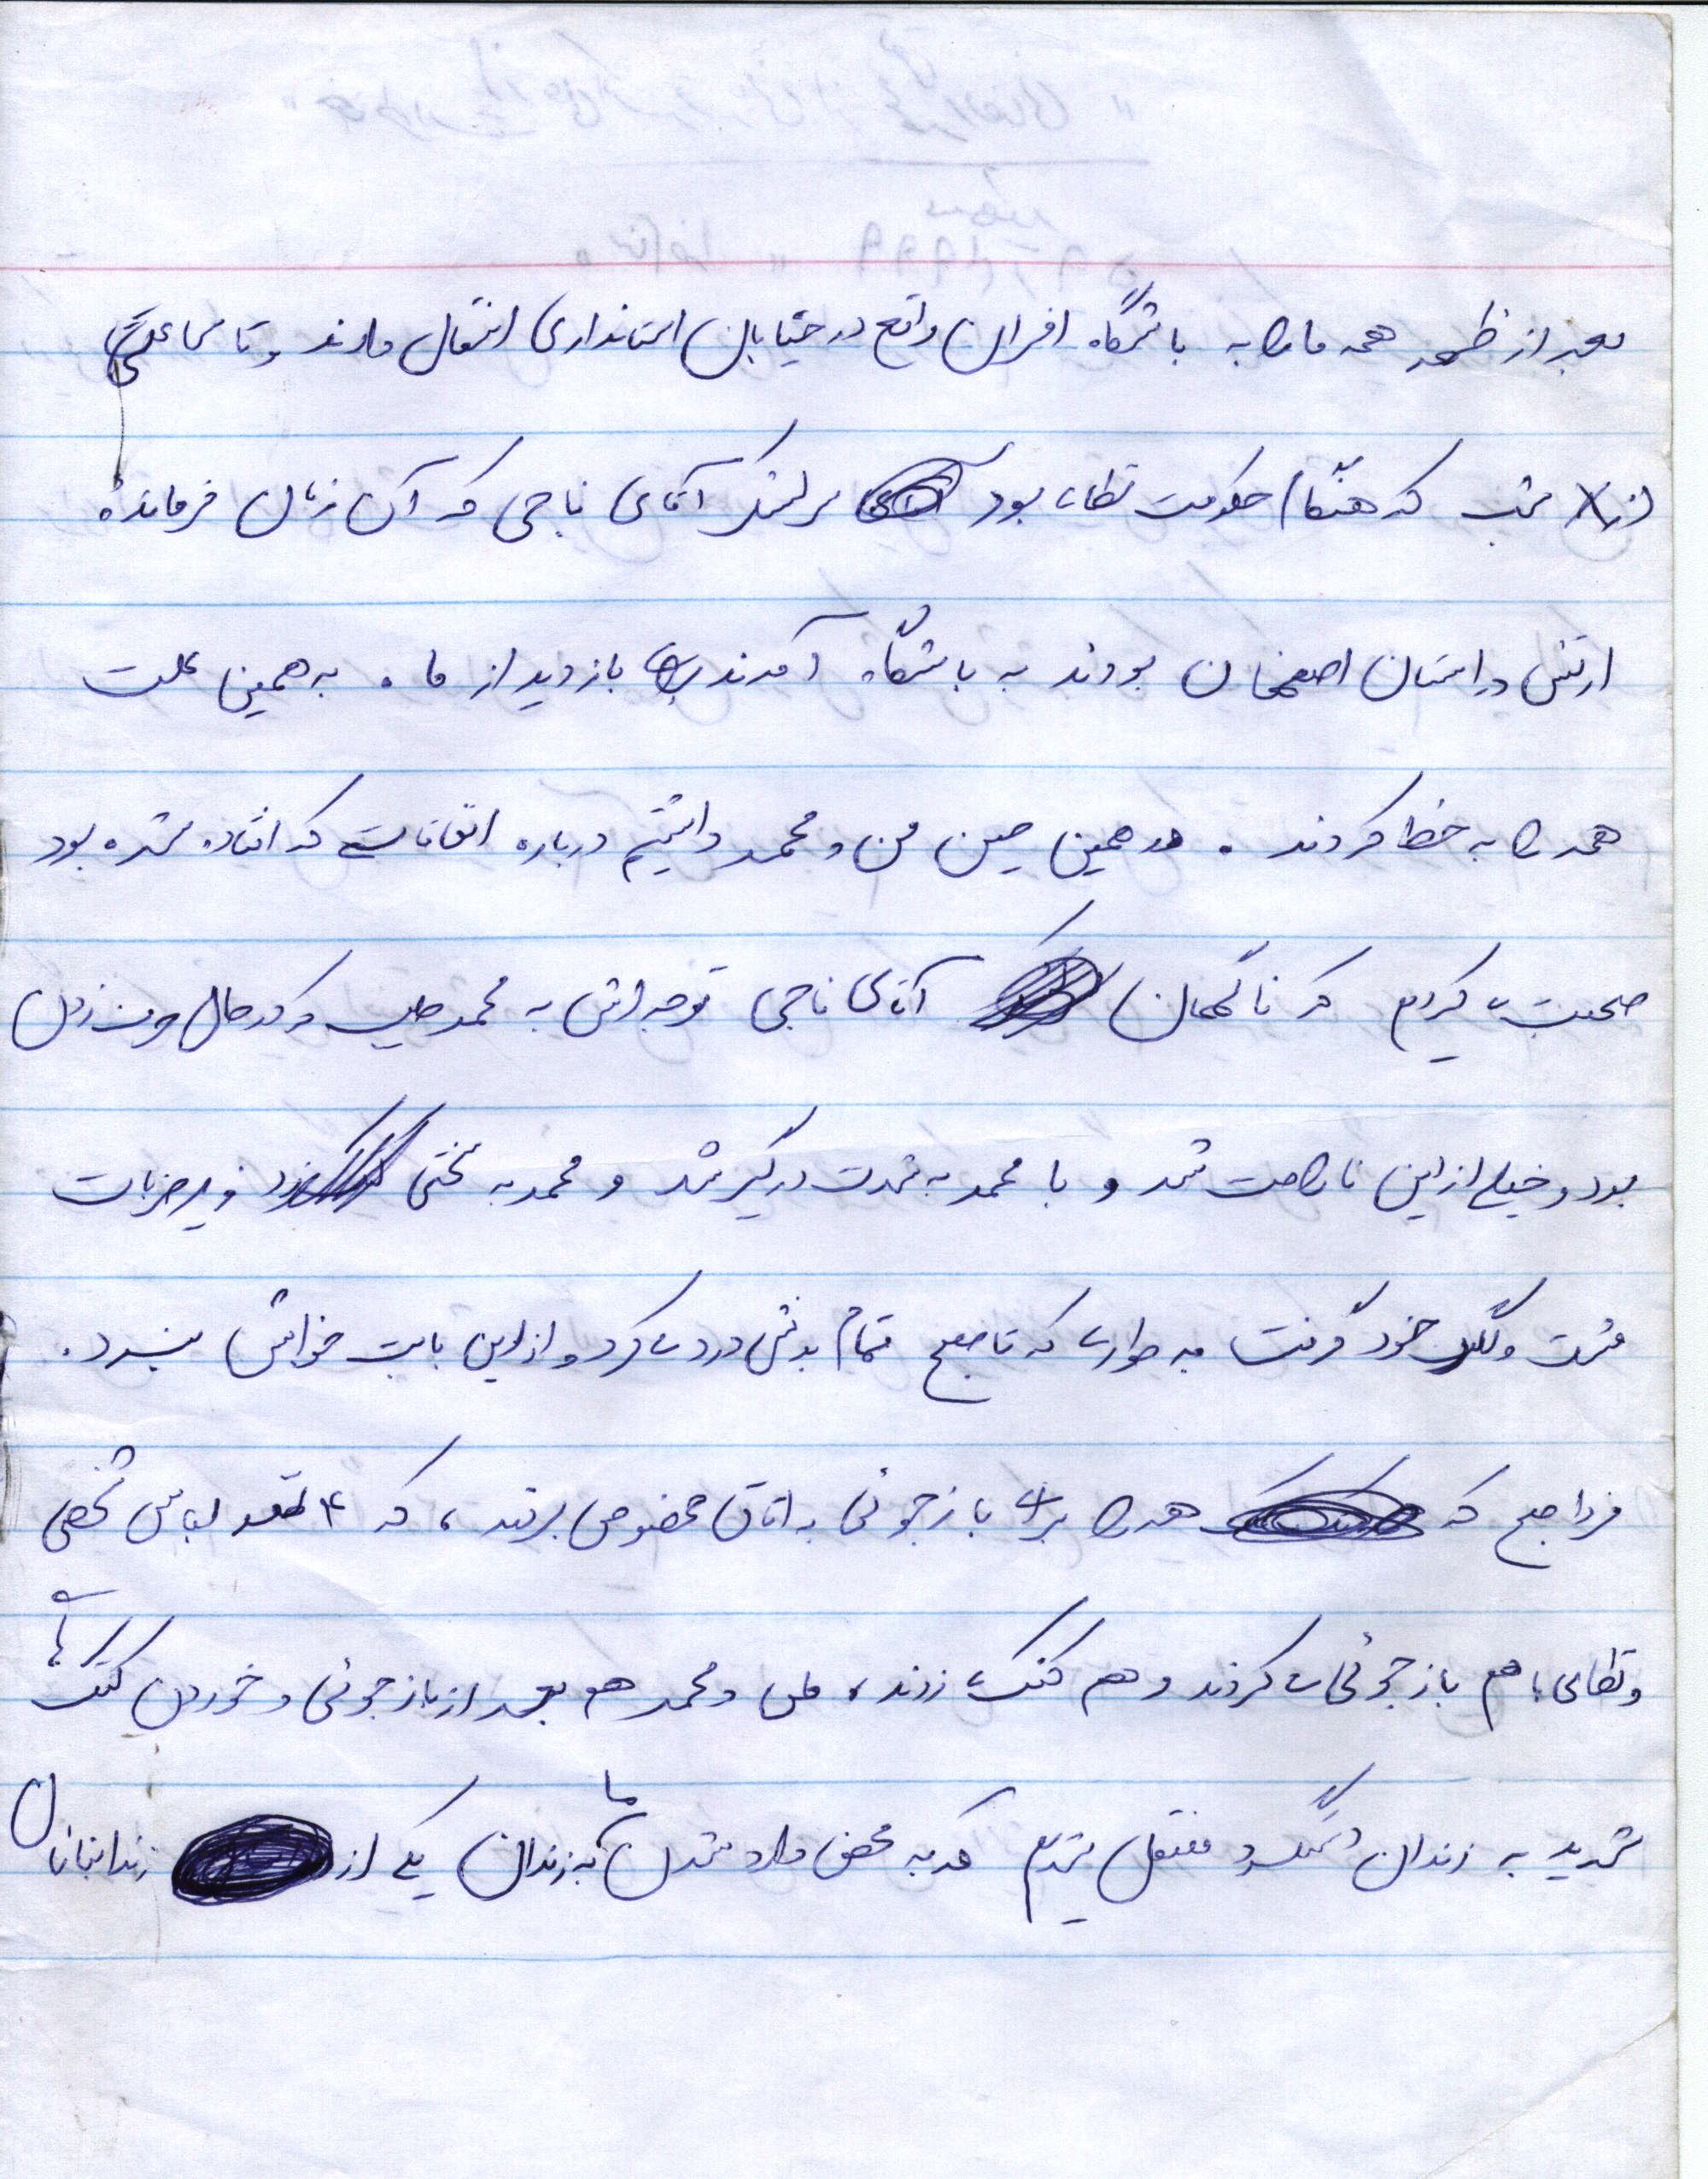 بعد از ظهر همه ما را به باشگاه افسران واقع در خیابان استانداری انتقال دادند و تا ساعتی
از شب که هنگام حکومت نظامی بود سرلشکر آقای ناجی که آن زمان فرمانده
ارتش در استان اصفهان بودند به باشگاه آمدند برای بازدید از ما. به همین علت
همه را به خط کردند. در همین حین من و محمد داشتیم درباره اتفاقات که افتاده شده بود
صحبت می کردیم که ناگهان آقای ناجی توجه اش به محمد جلب که در حال حرف زدن
بود و خیلی از این ناراحت شد و با محمد به شدت درگیر شد و محمد به سختی زیر ضربات
مشت و لگد خود گرفت به طوری که تا صبح تمام بدنش درد می کرد و از این بابت خوابش نبرد.
فردا صبح که همه را برای بازجوئی به اتاق مخصوصی بردند، که ۴ نفر لباس شخصی
و نظامی با هم بازجوئی می کردند و هم کتک می زدند، من و محمد هم بعد از بازجوئی و خوردن کتک های
شدید به زندان دستگرد منتقل شدیم که به محض وارد شدن ما به زندان یکی از زندانبانان